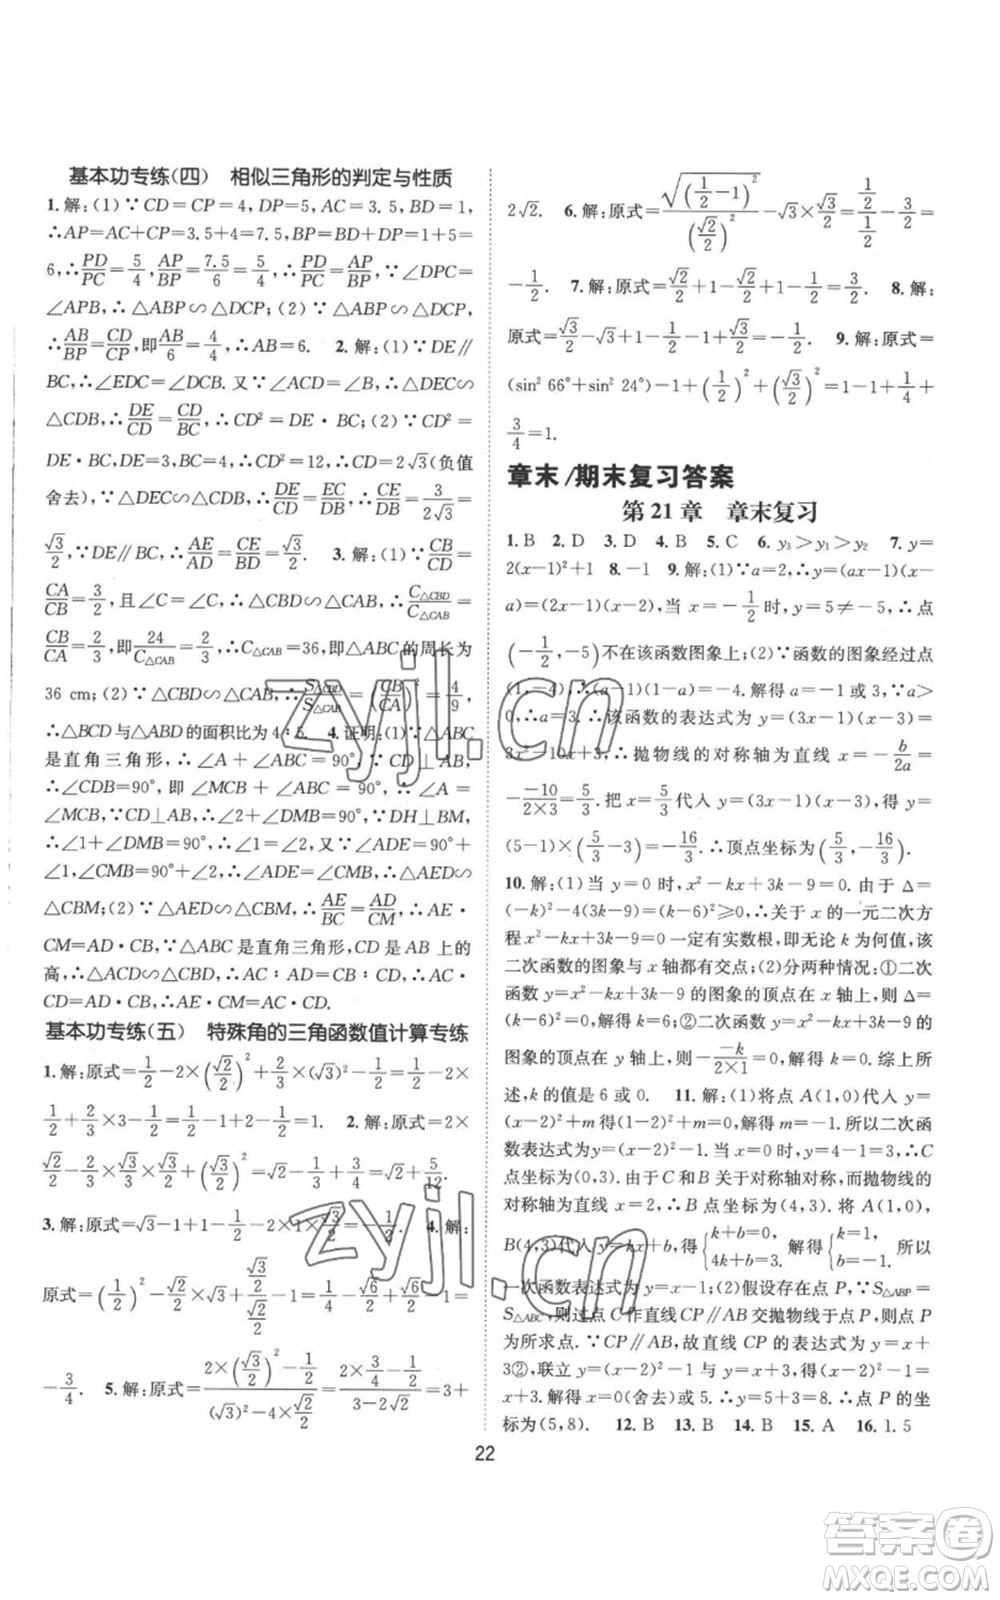 基本功专练(四) 相似三角形的判定与性质
1.解:(1)∵CD=CP=4,DP=5,AC=3.5,BD=1,
∴AP=AC+CP=3.5+4=7.5,BP=BD+CD=1+5=
6,∴PD/PC=5/4,AP/BP=7.5/6=5/4,∴PD/PC=AP/BP,∵∠DPC=
∠APB,∴△ABP∽△DCP;(2)∵△ABP∽△DCP,
∴AB/BP=CD/CP,即AB/6=4/4,∴AB=6. 2.解:(1)∵DE∥
BC,∴∠EDC=∠DCB.又∵∠A=∠DCE,∴△DEC∽
△CDB,∴DE/CD=CD/BC,∴CD²=DE·BC;(2)∵CD²=
DE·BC,∴CD²=3×4,∴CD²=12,∴CD=2√3(负值
舍去),∵△DEC∽△CDB,∴DE/CD=EC/DB=DC/CB=3/(2√3)=
√3/2,∵DE∥BC,∴AE/AD=CE/BD=√3/2. 3.解:(1)∵CB/CD=
CA/CB=3/2,且∠A=∠A,∴△CBD∽△CAB,∴C△CBD/C△CAB=
CB/CA=2/3,即24/C△CAB=2/3,∴C△CAB=36,即△ABC的周长为
36 cm;(2)∵△CBD∽△CAB,∴S△CBD/S△CAB=(CB/CA)²=4/9,
∴△BCD与△ABD的面积比为4∶5. 4.证明:(1)∵△ABC
是直角三角形,∴∠A+∠ABC=90°,∵CD⊥AB,
∴∠CDB=90°,即∠BCD+∠ABC=90°,∴∠A=
∠MCB,∵CD⊥AB,∴∠2+∠DMB=90°,∵DH⊥BM,
∴∠1+∠DMB=90°,∴∠1=∠2.又∵∠ADE=90°+
∠1,∠CMB=90°+∠2,∴∠ADE=∠CMB,∴△AED∽
△CBM;(2)∵△AED∽△CBM,∴AE/BC=AD/CM,∴AE·
CM=AD·BC,∵△ABC是直角三角形,CD是AB上的
高,∴△ACD∽△ABC,∴AC∶AD=BC∶CD,∴AC·
CD=AD·BC,∴AE·CM=AC·CD.
基本功专练(五) 特殊角的三角函数值计算专练
1.解:原式=1/2-2×(√2/2)²+2/3×(√3)²=1/2-2×
1/2+2/3×3-1/2=1/2-1+2-1/2=1. 2.解:原式=2×
√2/2-2/3×√3/2×√3/2+(√3/2)²=√2-1/3+3/4=√2+5/12.
3.解:原式=√3-1+1-1/2-2×1×√3/2=-1/2. 4.解:
原式=(1/2)²-√2/2×√6/2+(√3/2)/(√2/2)×√2/2=1/4-√6/4+√6/4-1=
-3/4. 5.解:原式=(2×(√3/2)²-1/2)/((√3)²-4×√2/2)=(2×3/4-1/2)/(3-2√2)=3+
2√2. 6.解:原式=√((1/2-1)²)/(√2/2)²-√3×√3/2=(1/2)/(1/2)-3/2=
-1/2. 7.解:原式=√2/2+1-√2/2+1-1/2=3/2. 8.解:
原式=√3/2-1/2-√3/2+1=1/2. 9.解:原式=
(sin² 66°+sin² 24°)-1+(1/2)²+(√3/2)²=1-1+1/4+
3/4=1.
章末/期末复习答案
第21章 章末复习
1.B 2.D 3.D 4.B 5.C 6.y₃>y₁>y₂ 7.y=
2(x-1)²+1 8.-1 9.解:(1)∵a=2,∴y=(ax-1)(x-
a)=(2x-1)(x-2),当x=-1/2时,y=5≠-5,∴点
(-1/2,-5)不在该函数图象上;(2)∵函数的图象经过点
(1,-4),∴(a-1)(1-a)=-4,解得a=-1或3,∵a>
0,∴a=3,∴该函数的表达式为y=(3x-1)(x-3)=
3x²-10x+3,∴抛物线的对称轴为直线x=-b/2a=
-(-10)/(2×3)=5/3.把x=5/3代入y=(3x-1)(x-3),得y=
(5-1)×(5/3-3)=-16/3,∴顶点坐标为(5/3,-16/3).
10.解:(1)当y=0时,x²-kx+3k-9=0.由于Δ=
(-k)²-4(3k-9)=(k-6)²≥0,∴关于x的一元二次方
程x²-kx+3k-9=0一定有实数根,即无论k为何值,该
二次函数的图象与x轴都有交点;(2)分两种情况:①二次
函数y=x²-kx+3k-9的图象的顶点在x轴上,则Δ=
(k-6)²=0,解得k=6;②二次函数y=x²-kx+3k-9
的图象的顶点在y轴上,-(-k)/(2×1)=0,解得k=0.综上所
述,k的值是6或0. 11.解:(1)将点A(1,0)代入y=
(x-2)²+m,得(1-2)²+m=0,解得m=-1.所以二次函
数表达式为y=(x-2)²-1.当x=0时,y=4-1=3,∴C
点坐标为(0,3).由于C和B关于对称轴对称,而抛物线的
对称轴为直线x=2,∴B点坐标为(4,3).将A(1,0),
B(4,3)代入y=kx+b,得{k+b=0,4k+b=3.解得{k=1,b=-1.所以
一次函数表达式为y=x-1;(2)假设存在点P,∵S△ABP=
S△ABC,则过点C作直线CP∥AB交抛物线于点P,则点P
为所求点.∵CP∥AB,故直线CP的表达式为y=x+
3②,联立①②,得x-1与y=x+3,得x²-4x+3=x+
3.解得x=0(舍去)或x=5.当x=5时,y=8,∴点P的坐
标为(5,8). 12.B 13.B 14.B 15.A 16.1.5
22
zyjl.cn
zyjl.cn
答案圈
MXQE.COM